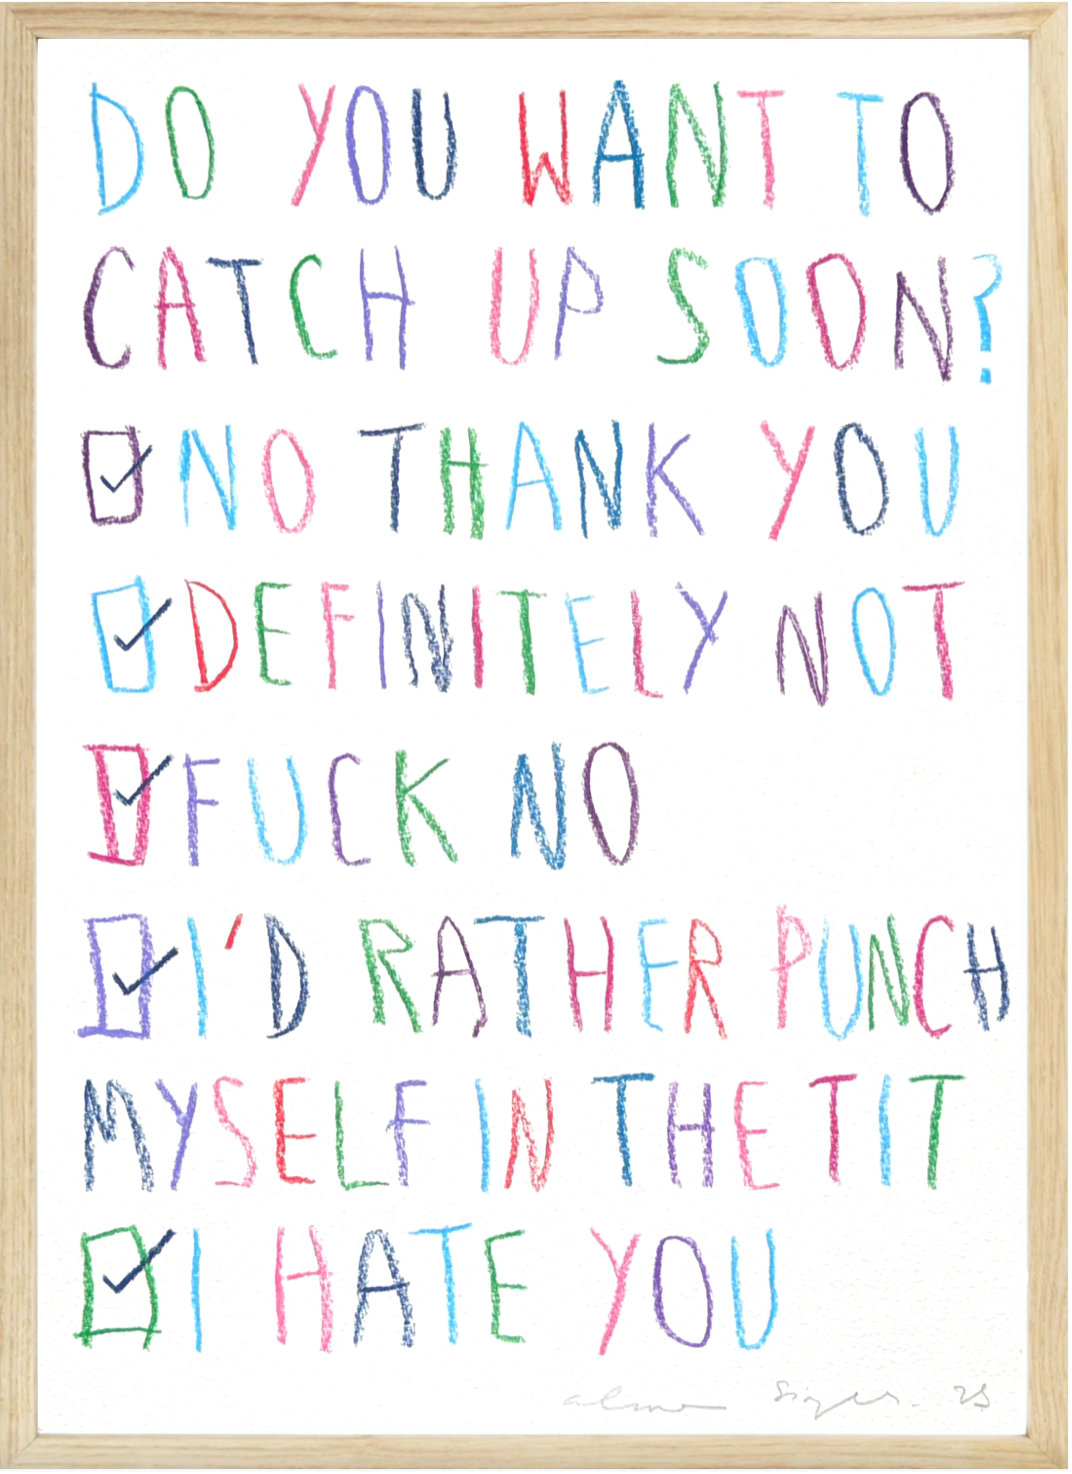 DO YOU WANT TO
CATCH UP SOON?
☑ NO THANK YOU
☑ DEFINITELY NOT
☑ FUCK NO
☑ I'D RATHER PUNCH
MYSELF IN THE TIT
☑ I HATE YOU